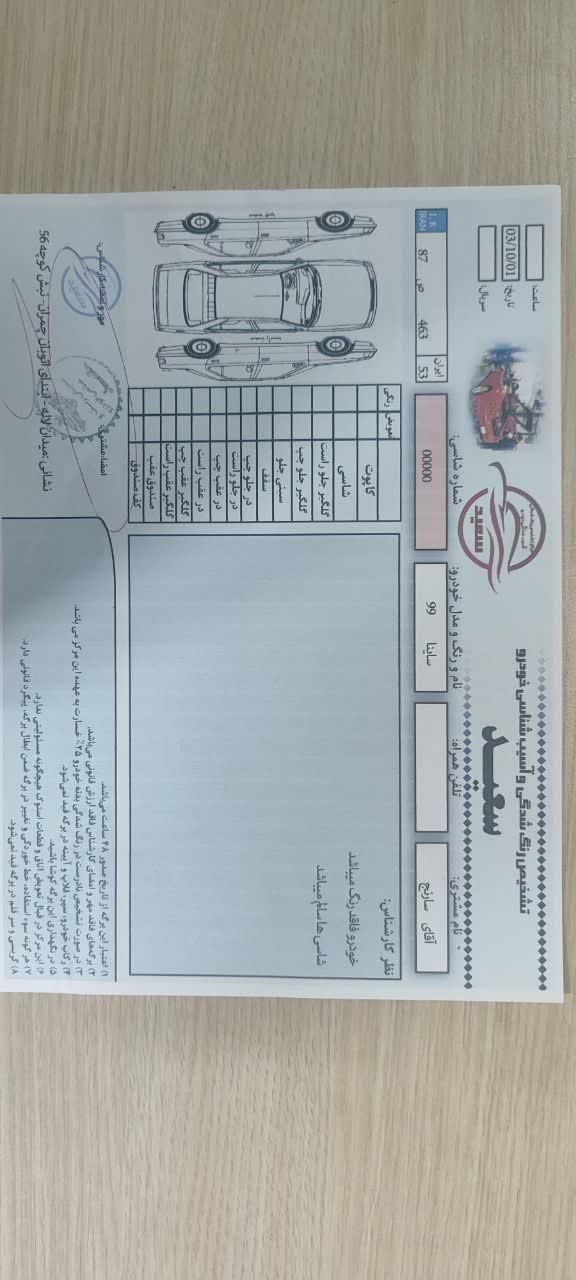 تشخیص رنگ شدگی و آسیب شناسی خودرو
سعید
سعید
ساعت:
تاریخ: 03/10/01
سریال:
نام مشتری: آقای سارنج
تلفن همراه:
نام و رنگ و مدل خودرو: ساینا 99
شماره شاسی: 00000
I R IRAN 87 ص 463 ایران 53
نظر کارشناس:
خودرو فاقد رنگ میباشد
شاسی ها سالم میباشد
تعویض رنگی
کاپوت
شاسی
گلگیر جلو راست
گلگیر جلو چپ
سینی جلو
سقف
در جلو چپ
در جلو راست
در عقب چپ
در عقب راست
گلگیر عقب چپ
گلگیر عقب راست
صندوق عقب
کف صندوق
۱) اعتبار این برگه از تاریخ صدور ۴۸ ساعت می‌باشد.
۲) برگه‌های فاقد مهر و امضای کارشناس فاقد ارزش قانونی می‌باشد.
۳) در صورت تشخیص نادرست در رنگ شدگی بدنه خودرو ۲۵٪ خسارت به عهده این مرکز می باشد.
۴) رکاب خودرو، سپر، قلاب و آیینه در برگه قید نمی‌شود.
۵) در نگهداری این برگه کوشا باشید.
۶) این مرکز در قبال تعویض اتاق و قطعات استوک هیچگونه مسئولیتی ندارد.
۷) هر گونه سوء استفاده، خط خوردگی و تغییر در برگه ضمن ابطال برگه، پیگرد قانونی دارد.
۸) گریسی و سر قلم در برگه قید نمی‌شود.
امضا مشتری:
مهر و امضا کارشناس:
نشانی :میدان لاله - ابتدای اتوبان چمران- نبش کوچه 56